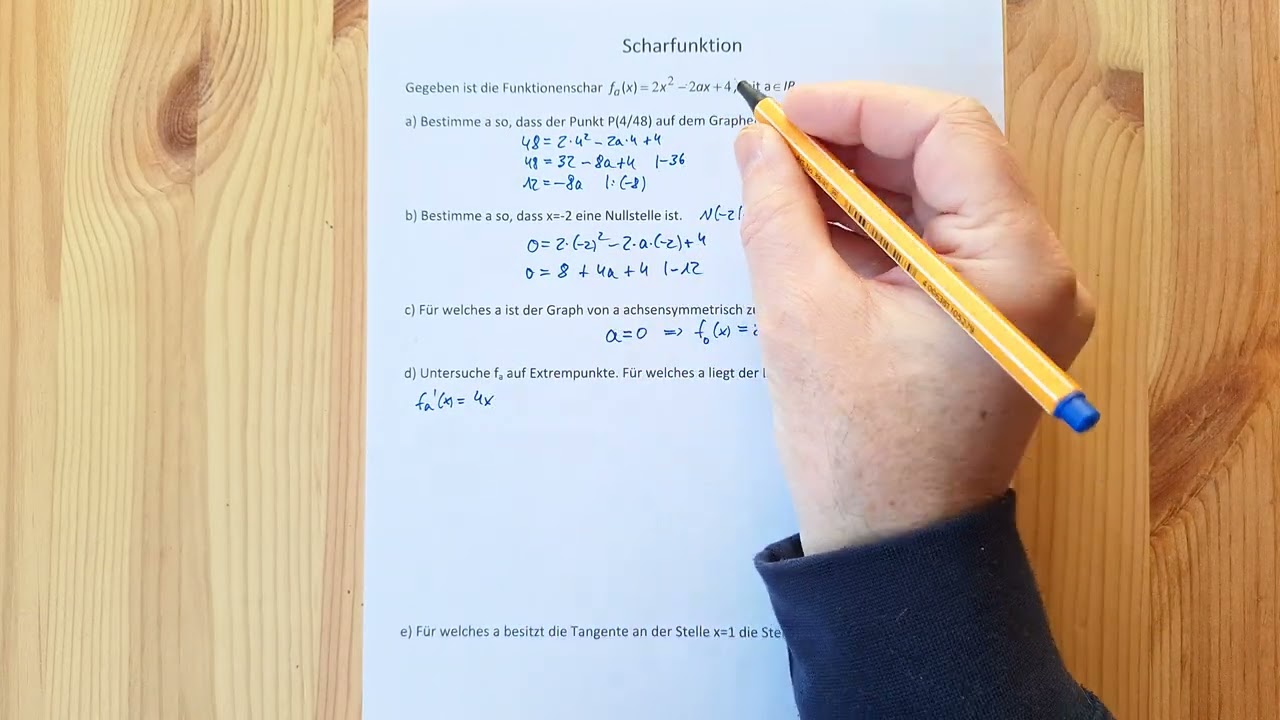 Scharfunktion
Gegeben ist die Funktionenschar fₐ(x) = 2x² − 2ax + 4, it a ∈ IR
a) Bestimme a so, dass der Punkt P(4/48) auf dem Graphe
48 = 2·4² − 2a·4 + 4
48 = 32 − 8a + 4 |−36
12 = −8a |:(−8)
b) Bestimme a so, dass x=-2 eine Nullstelle ist. N(−2|
0 = 2·(−2)² − 2·a·(−2) + 4
0 = 8 + 4a + 4 |−12
c) Für welches a ist der Graph von a achsensymmetrisch zu
a=0 ⇒ f₀(x) = 2
d) Untersuche fₐ auf Extrempunkte. Für welches a liegt der
fₐ'(x) = 4x
e) Für welches a besitzt die Tangente an der Stelle x=1 die Ste